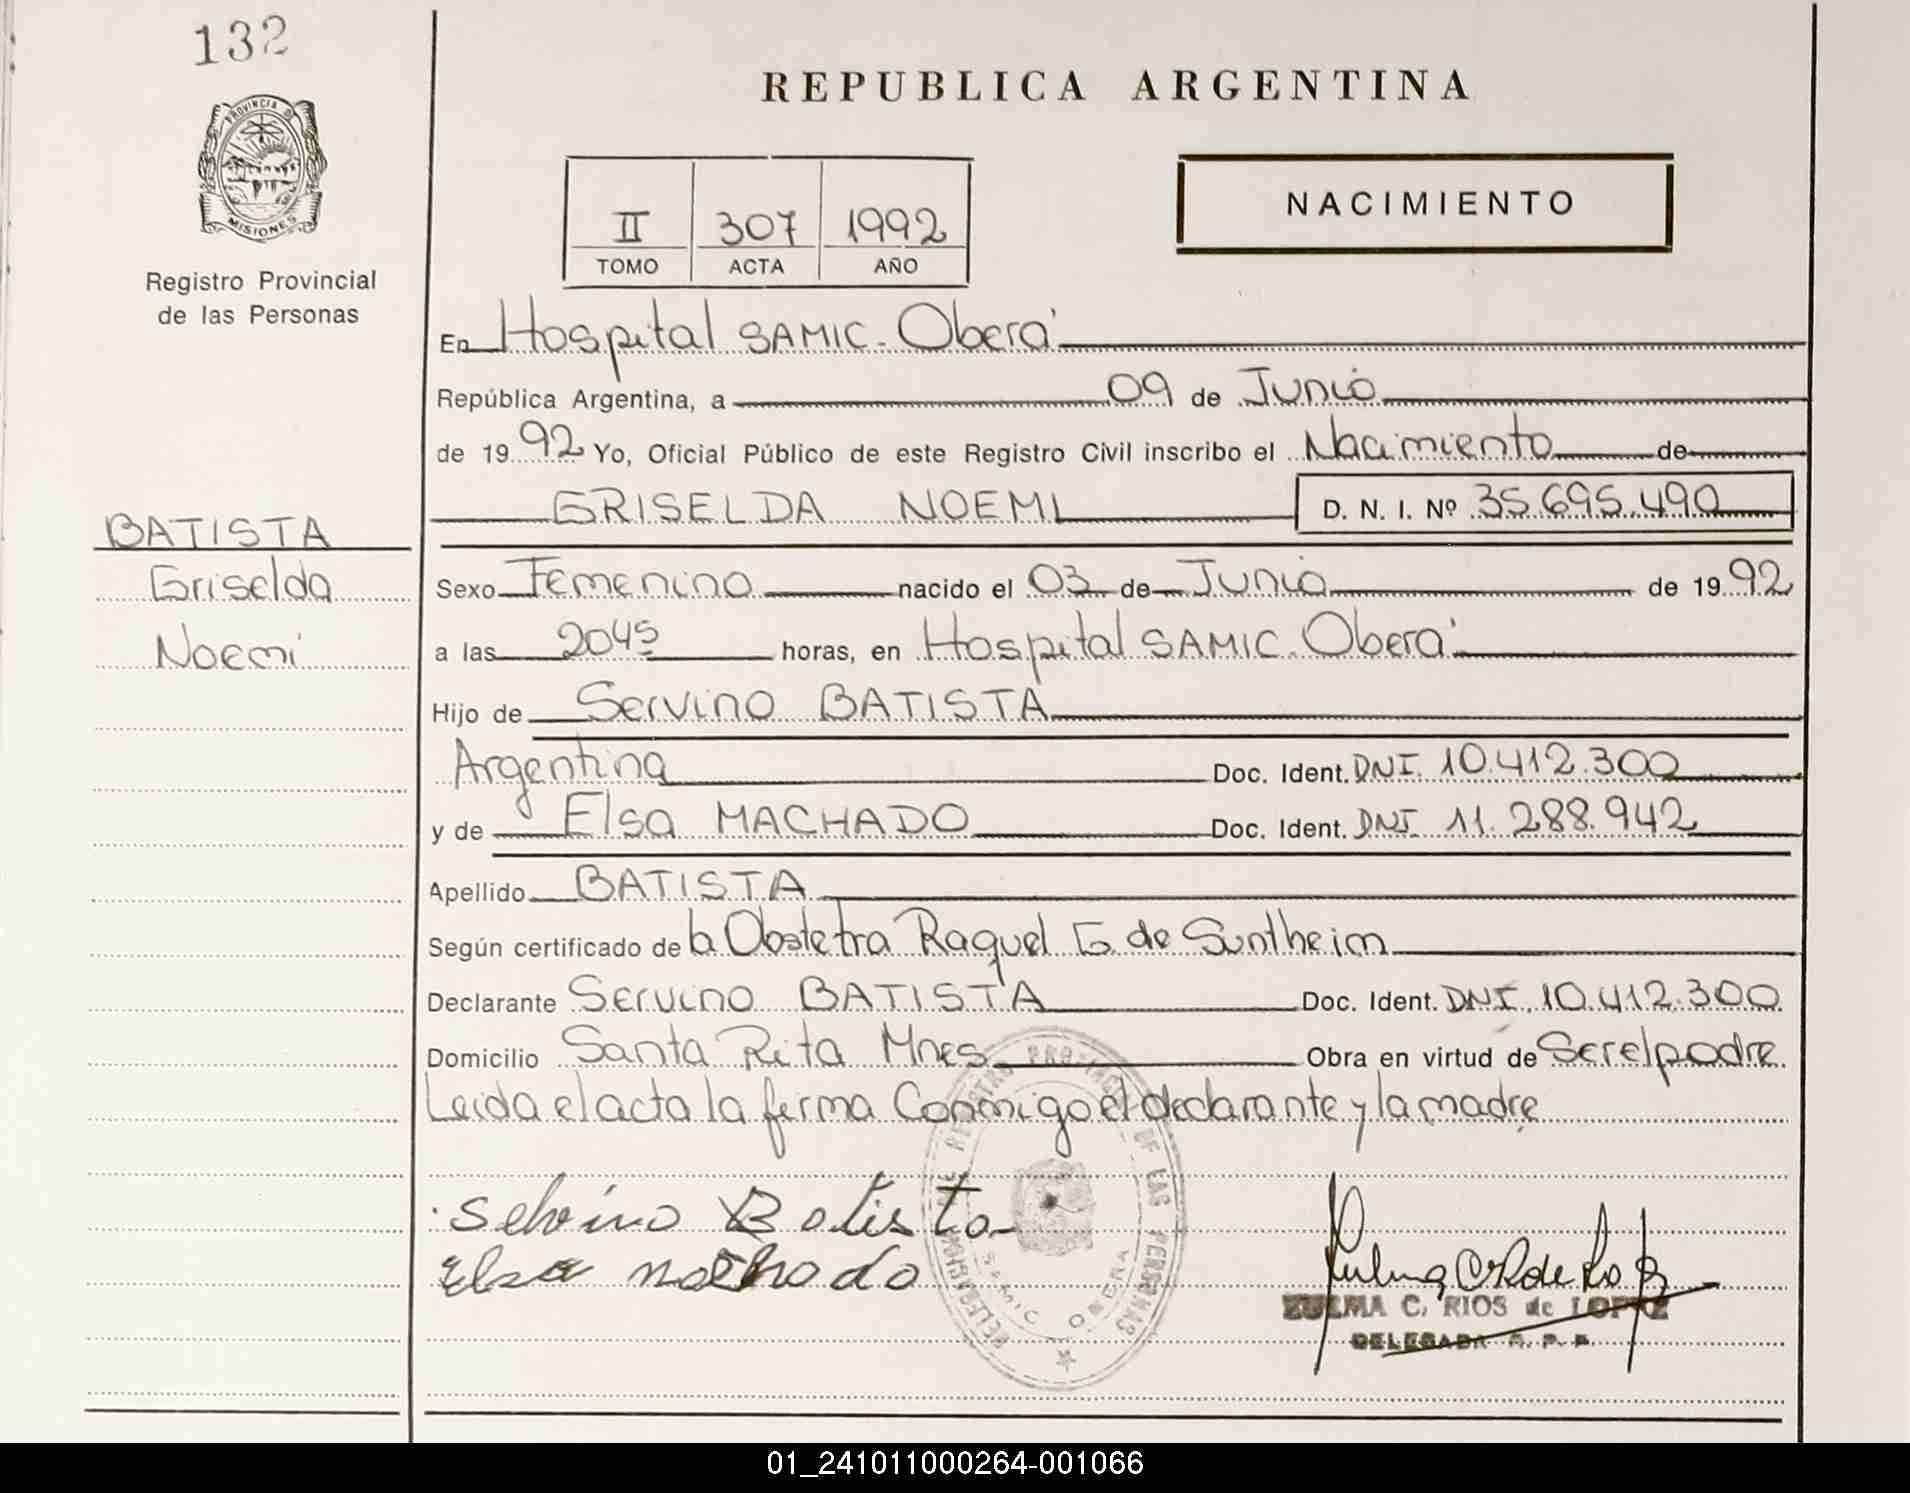 132
PROVINCIA DE
MISIONES
Registro Provincial
de las Personas
BATISTA
Griselda
Noemi
REPUBLICA ARGENTINA
II 307 1992
TOMO ACTA AÑO
NACIMIENTO
En Hospital SAMIC. Oberá
República Argentina, a 09 de Junio
de 1992 Yo, Oficial Público de este Registro Civil inscribo el Nacimiento de
GRISELDA NOEMI D. N. I. Nº 35.695.490
Sexo Femenino nacido el 03 de Junio de 1992
a las 2045 horas, en Hospital SAMIC. Oberá
Hijo de Servino BATISTA
Argentina Doc. Ident. DNI. 10.412.300
y de Elsa MACHADO Doc. Ident. DNI 11.288.942
Apellido BATISTA
Según certificado de la Obstetra Raquel G. de Suntheim
Declarante Servino BATISTA Doc. Ident. DNI. 10.412.300
Domicilio Santa Rita Mnes Obra en virtud de Ser el padre
Leida el acta la firma Conmigo el declarante y la madre
Selvino Batista
Elsa machado
REGISTRO PROVINCIAL DE LAS PERSONAS
DELEGACION
SAMIC OBERA
ZULMA C. RIOS de LOPEZ
DELEGADA R. P. P.
01_241011000264-001066